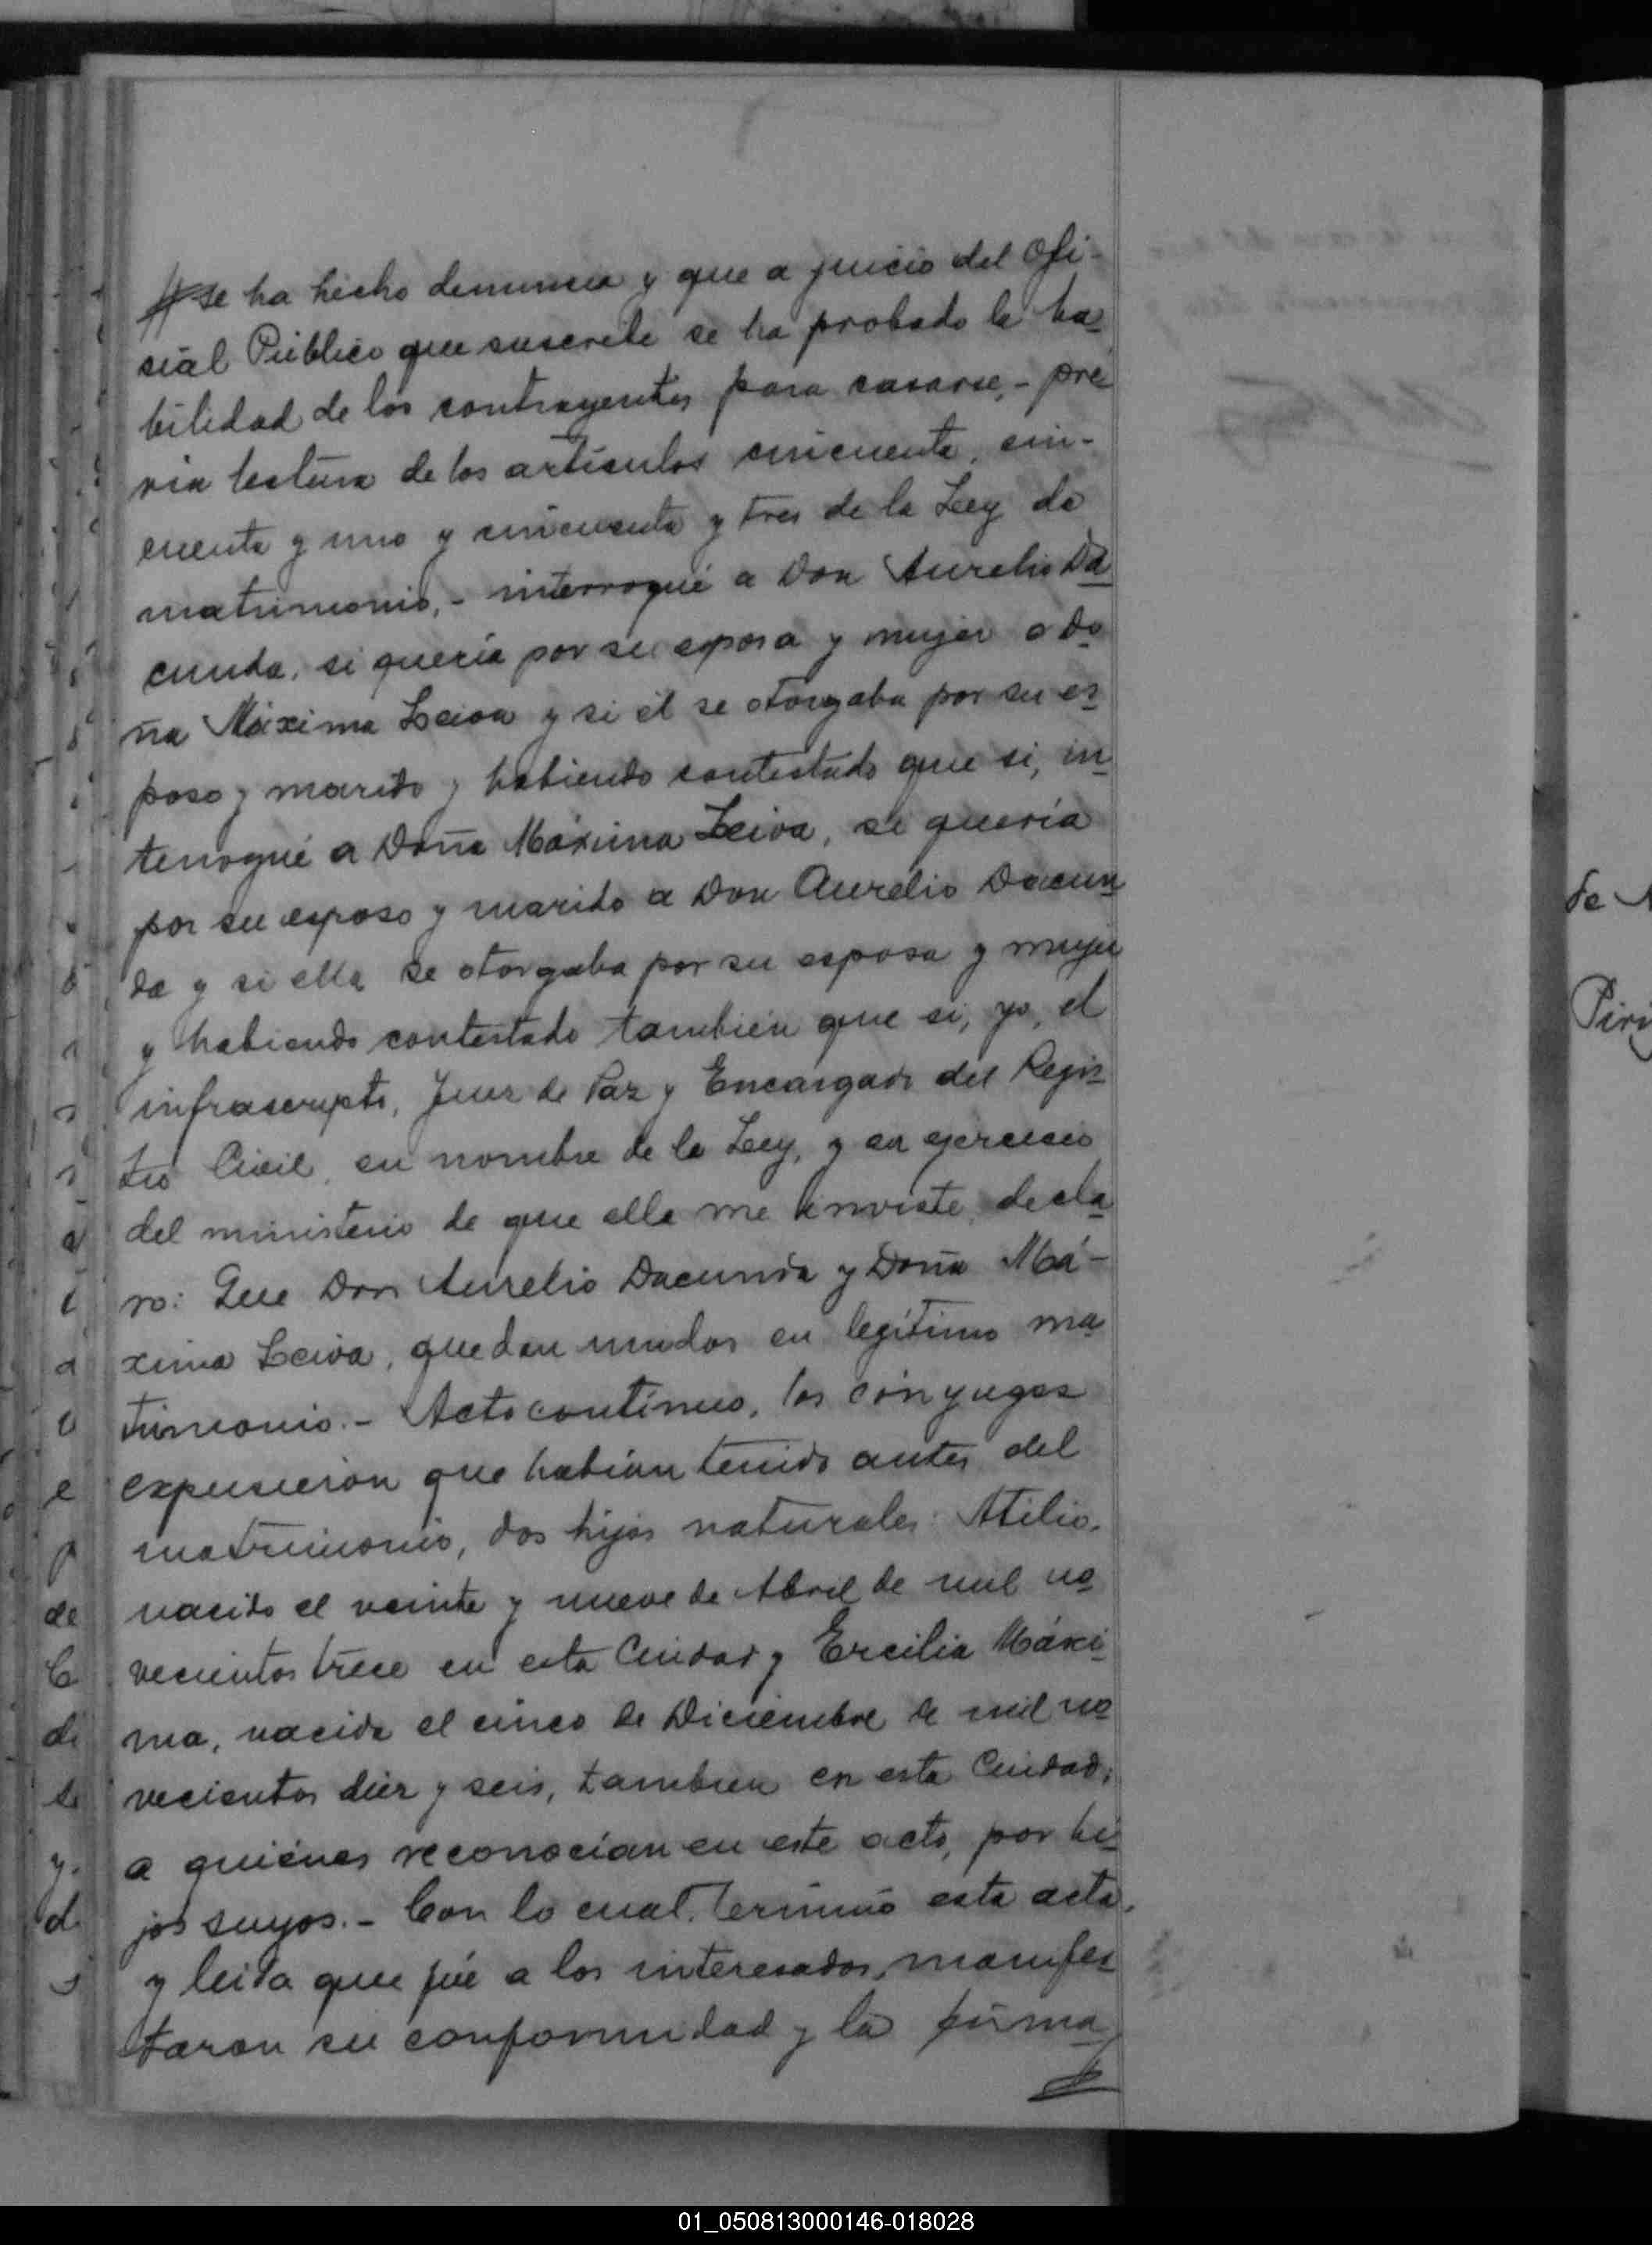 se ha hecho denuncia y que a juicio del Ofi-
cial Público que suscribe se ha probado la ha-
bilidad de los contrayentes para casarse,- pré
via lectura de los artículos cincuenta, cin-
cuenta y uno y cincuenta y tres de la Ley de
matrimonio,- interrogué a Don Aurelio Da
cunda, si quería por su esposa y mujer a Do
ña Máxima Leiva y si él se otorgaba por su es
poso y marido y habiendo contestado que si, in
terrogué a Doña Máxima Leiva, si quería
por su esposo y marido a Don Aurelio Dacun
da y si ella se otorgaba por su esposa y mujer
y habiendo contestado también que si, yo, el
infrascripto, Juez de Paz y Encargado del Regis
tro Civil, en nombre de la Ley, y en ejercicio
del ministerio de que ella me inviste, decla
ro: Que Don Aurelio Dacunda y Doña Má-
xima Leiva, quedan unidos en legítimo ma
trimonio.- Acto contínuo, los cónyuges
expusieron que habían tenido antes del
matrimonio, dos hijos naturales: Atilio,
nacido el veinte y nueve de Abril de mil no
vecientos trece en esta Ciudad y Ercilia Máxi
ma, nacida el cinco de Diciembre de mil no
vecientos diez y seis, tambien en esta Ciudad;
a quiénes reconocían en este acto, por hi
jos suyos.- Con lo cual, terminó esta acta,
y leida que fué a los interesados, manifes
taron su conformidad y la firma
de
Piri
01_050813000146-018028